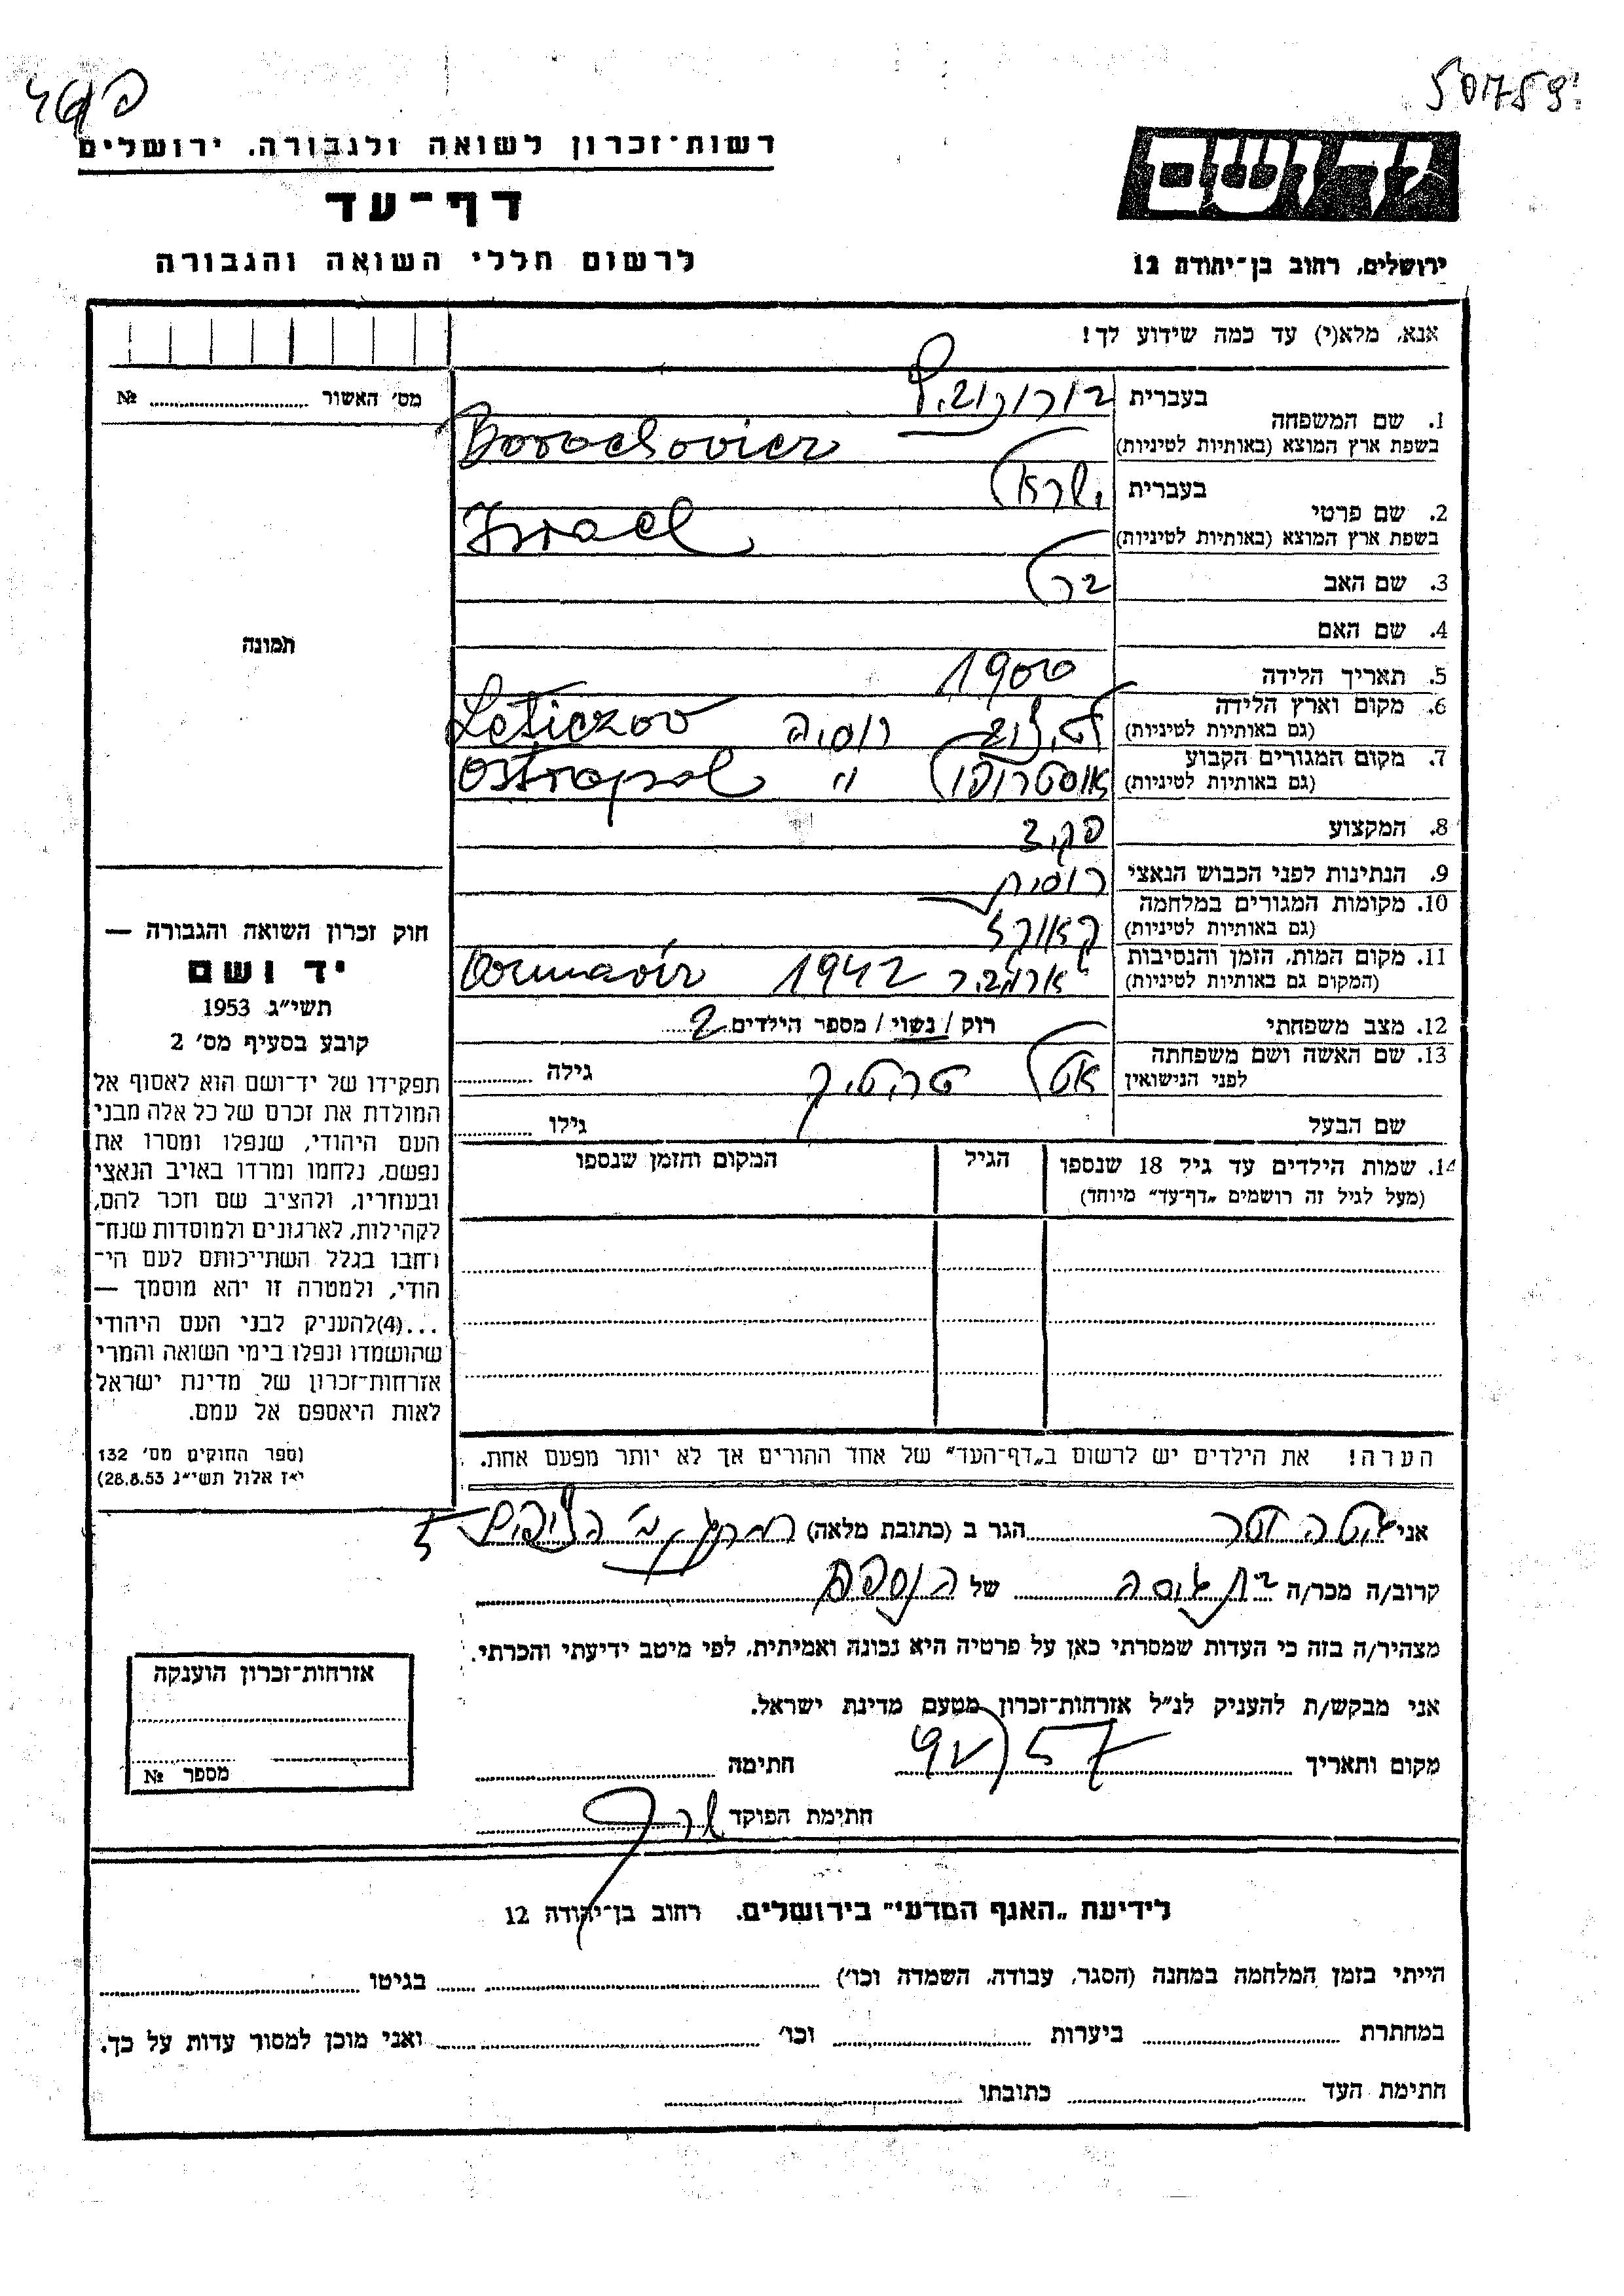 50759
רשות־זכרון לשואה ולגבורה. ירושלים
דף־עד
לרשום חללי השואה והגבורה
יד ושם
ירושלים, רחוב בן־יהודה 12
אנא, מלא(י) עד כמה שידוע לך!
מס׳ האשור № 
1. שם המשפחה
בעברית בורוכוביץ
בשפת ארץ המוצא (באותיות לטיניות) Borochovicz
2. שם פרטי
בעברית ישראל
בשפת ארץ המוצא (באותיות לטיניות) Israel
3. שם האב בר
4. שם האם
5. תאריך הלידה 1900
6. מקום וארץ הלידה (גם באותיות לטיניות) רוסיה Leticzov
7. מקום המגורים הקבוע (גם באותיות לטיניות) אוסטרופול " Ostropol
8. המקצוע פקיד
9. הנתינות לפני הכבוש הנאצי רוסית
10. מקומות המגורים במלחמה (גם באותיות לטיניות) קאוקז
11. מקום המות, הזמן והנסיבות (המקום גם באותיות לטיניות) ארמביר 1942 Armavir
12. מצב משפחתי רוק / נשוי / מספר הילדים 2
13. שם האשה ושם משפחתה לפני הנישואין אטל גילה
שם הבעל גילו
14. שמות הילדים עד גיל 18 שנספו (מעל לגיל זה רושמים „דף־עד״ מיוחד)
הגיל
המקום והזמן שנספו
הערה! את הילדים יש לרשום ב„דף־העד״ של אחד ההורים אך לא יותר מפעם אחת.
תמונה
חוק זכרון השואה והגבורה —
יד ושם
תשי״ג 1953
קובע בסעיף מס׳ 2
תפקידו של יד־ושם הוא לאסוף אל
המולדת את זכרם של כל אלה מבני
העם היהודי, שנפלו ומסרו את
נפשם, נלחמו ומרדו באויב הנאצי
ובעוזריו, ולהציב שם וזכר להם,
לקהילות, לארגונים ולמוסדות שנח־
רבו בגלל השתייכותם לעם הי־
הודי, ולמטרה זו יהא מוסמך —
...(4)להעניק לבני העם היהודי
שהושמדו ונפלו בימי השואה והמרי
אזרחות־זכרון של מדינת ישראל
לאות היאספם אל עמם.
(ספר החוקים מס׳ 132
י״ז אלול תשי״ג 28.8.53)
אני הגר ב (כתובת מלאה)
קרוב/ה מכר/ה בת של הנספה
מצהיר/ה בזה כי העדות שמסרתי כאן על פרטיה היא נכונה ואמיתית, לפי מיטב ידיעתי והכרתי.
אני מבקש/ת להעניק לנ״ל אזרחות־זכרון מטעם מדינת ישראל.
מקום ותאריך חתימה
חתימת הפוקד
אזרחות־זכרון הוענקה
מספר №
לידיעת „האגף המדעי״ בירושלים. רחוב בן־יהודה 12
הייתי בזמן המלחמה במחנה (הסגר, עבודה, השמדה וכו׳) בגיטו
במחתרת ביערות וכו׳ ואני מוכן למסור עדות על כך.
חתימת העד כתובתו